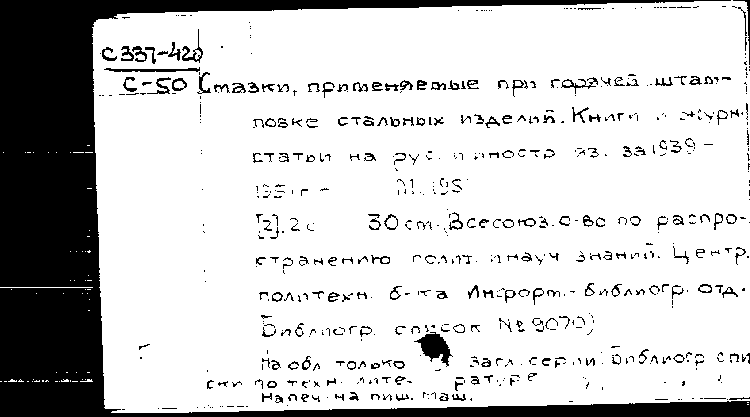 С 337-420
С-50 Смазки, применяемые при горячей штам-
повке стальных изделий. Книги и журн.
статьи на рус. и иностр. яз. за 1939-
195 г. - М. 195
[2]. 2 с 30 см. (Всесоюз. о-во по распро-
странению полит. и науч знаний. Центр.
политехн. б-ка Информ.-библиогр. отд.
Библиогр. список № 9070)
На обл только загл. серии: Библиогр спи
ски по техн. лите- ратуре
Напеч. на пиш. маш.